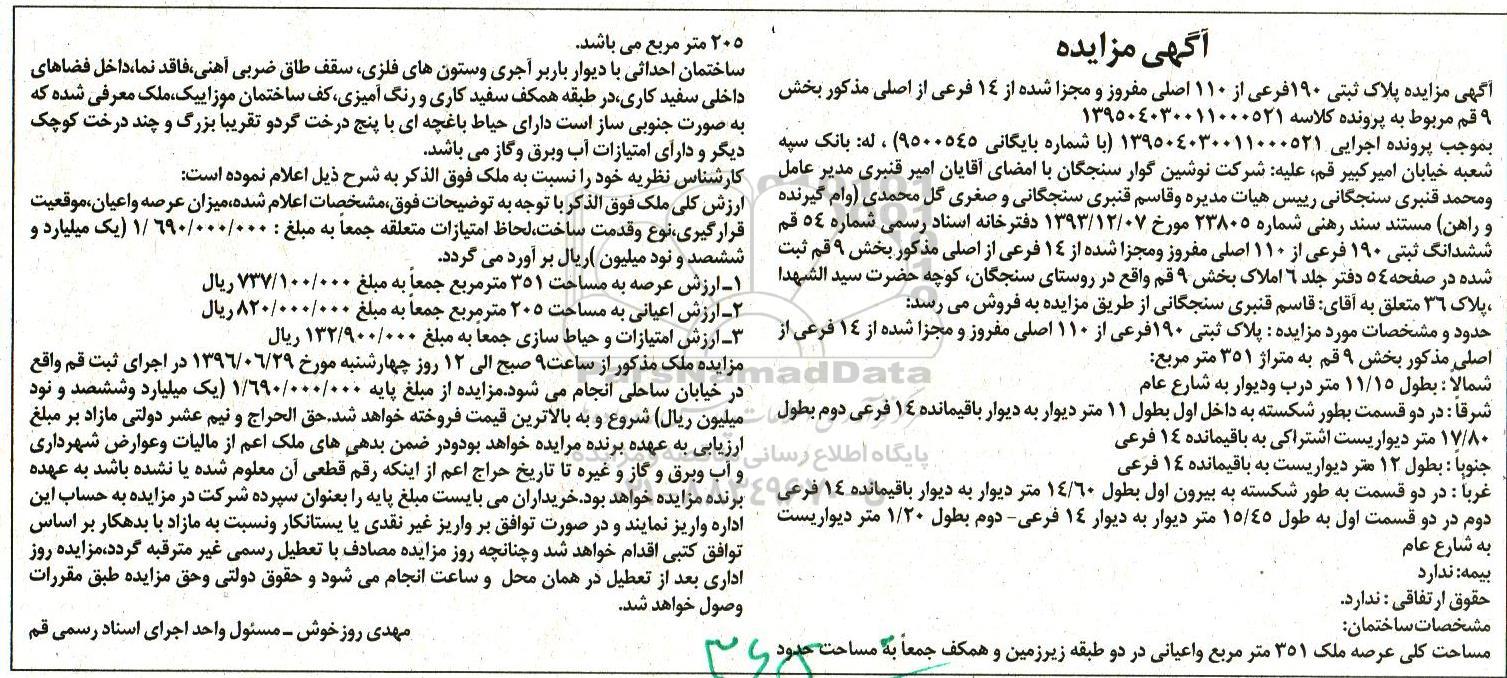 آگهی مزایده
آگهی مزایده پلاک ثبتی ۱۹۰فرعی از ۱۱۰ اصلی مفروز و مجزا شده از ۱۴ فرعی از اصلی مذکور بخش
۹ قم مربوط به پرونده کلاسه ۱۳۹۵۰۴۰۳۰۰۱۱۰۰۰۵۲۱
بموجب پرونده اجرایی ۱۳۹۵۰۴۰۳۰۰۱۱۰۰۰۵۲۱ (با شماره بایگانی ۹۵۰۰۵۴۵) ، له: بانک سپه
شعبه خیابان امیرکبیر قم، علیه: شرکت نوشین گوار سنجگان با امضای آقایان امیر قنبری مدیر عامل
ومحمد قنبری سنجگانی رییس هیات مدیره وقاسم قنبری سنجگانی و صغری گل محمدی (وام گیرنده
و راهن) مستند سند رهنی شماره ۲۳۸۰۵ مورخ ۱۳۹۳/۱۲/۰۷ دفترخانه اسناد رسمی شماره ۵۴ قم
ششدانگ ثبتی ۱۹۰ فرعی از ۱۱۰ اصلی مفروز ومجزا شده از ۱۴ فرعی از اصلی مذکور بخش ۹ قم ثبت
شده در صفحه۵۴ دفتر جلد ۶ املاک بخش ۹ قم واقع در روستای سنجگان، کوچه حضرت سید الشهدا
،پلاک ۳۶ متعلق به آقای: قاسم قنبری سنجگانی از طریق مزایده به فروش می رسد:
حدود و مشخصات مورد مزایده : پلاک ثبتی ۱۹۰فرعی از ۱۱۰ اصلی مفروز و مجزا شده از ۱۴ فرعی از
اصلی مذکور بخش ۹ قم به متراژ ۳۵۱ متر مربع:
شمالاً : بطول ۱۱/۱۵ متر درب ودیوار به شارع عام
شرقاً : در دو قسمت بطور شکسته به داخل اول بطول ۱۱ متر دیوار به دیوار باقیمانده ۱۴ فرعی دوم بطول
۱۷/۸۰ متر دیواریست اشتراکی به باقیمانده ۱۴ فرعی
جنوباً : بطول ۱۲ متر دیواریست به باقیمانده ۱۴ فرعی
غرباً : در دو قسمت به طور شکسته به بیرون اول بطول ۱۴/۶۰ متر دیوار به دیوار باقیمانده ۱۴ فرعی
دوم در دو قسمت اول به طول ۱۵/۴۵ متر دیوار به دیوار ۱۴ فرعی- دوم بطول ۱/۲۰ متر دیواریست
به شارع عام
بیمه: ندارد
حقوق ارتفاقی : ندارد.
مشخصات‌ساختمان:
مساحت کلی عرصه ملک ۳۵۱ متر مربع واعیانی در دو طبقه زیرزمین و همکف جمعاً به مساحت حدود
۲۰۵ متر مربع می باشد.
ساختمان احداثی با دیوار باربر آجری وستون های فلزی، سقف طاق ضربی آهنی،فاقد نما،داخل فضاهای
داخلی سفید کاری،در طبقه همکف سفید کاری و رنگ آمیزی،کف ساختمان موزاییک،ملک معرفی شده که
به صورت جنوبی ساز است دارای حیاط باغچه ای با پنج درخت گردو تقریباً بزرگ و چند درخت کوچک
دیگر و دارای امتیازات آب وبرق وگاز می باشد.
کارشناس نظریه خود را نسبت به ملک فوق الذکر به شرح ذیل اعلام نموده است:
ارزش کلی ملک فوق الذکر با توجه به توضیحات فوق،مشخصات اعلام شده،میزان عرصه واعیان،موقعیت
قرارگیری،نوع وقدمت ساخت،لحاظ امتیازات متعلقه جمعاً به مبلغ : ۱/ ۶۹۰/۰۰۰/۰۰۰ (یک میلیارد و
ششصد و نود میلیون )ریال بر آورد می گردد.
۱ـ ارزش عرصه به مساحت ۳۵۱ مترمربع جمعاً به مبلغ ۷۳۷/۱۰۰/۰۰۰ ریال
۲ـ ارزش اعیانی به مساحت ۲۰۵ مترمربع جمعاً به مبلغ ۸۲۰/۰۰۰/۰۰۰ ریال
۳ـ ارزش امتیازات و حیاط سازی جمعاً به مبلغ ۱۳۲/۹۰۰/۰۰۰ ریال
مزایده ملک مذکور از ساعت۹ صبح الی ۱۲ روز چهارشنبه مورخ ۱۳۹۶/۰۶/۲۹ در اجرای ثبت قم واقع
در خیابان ساحلی انجام می شود.مزایده از مبلغ پایه ۱/۶۹۰/۰۰۰/۰۰۰ (یک میلیارد وششصد و نود
میلیون ریال) شروع و به بالاترین قیمت فروخته خواهد شد.حق الحراج و نیم عشر دولتی مازاد بر مبلغ
ارزیابی به عهده برنده مزایده خواهد بودودر ضمن بدهی های ملک اعم از مالیات وعوارض شهرداری
و آب وبرق و گاز و غیره تا تاریخ حراج اعم از اینکه رقم قطعی آن معلوم شده یا نشده باشد به عهده
برنده مزایده خواهد بود.خریداران می بایست مبلغ پایه را بعنوان سپرده شرکت در مزایده به حساب این
اداره واریز نمایند و در صورت توافق بر واریز غیر نقدی یا بستانکار ونسبت به مازاد با بدهکار بر اساس
توافق کتبی اقدام خواهد شد وچنانچه روز مزایده مصادف با تعطیل رسمی غیر مترقبه گردد،مزایده روز
اداری بعد از تعطیل در همان محل و ساعت انجام می شود و حقوق دولتی وحق مزایده طبق مقررات
وصول خواهد شد.
مهدی روزخوش ـ مسئول واحد اجرای اسناد رسمی قم
ParsNamadData
پایگاه اطلاع رسانی مناقصه و مزایده